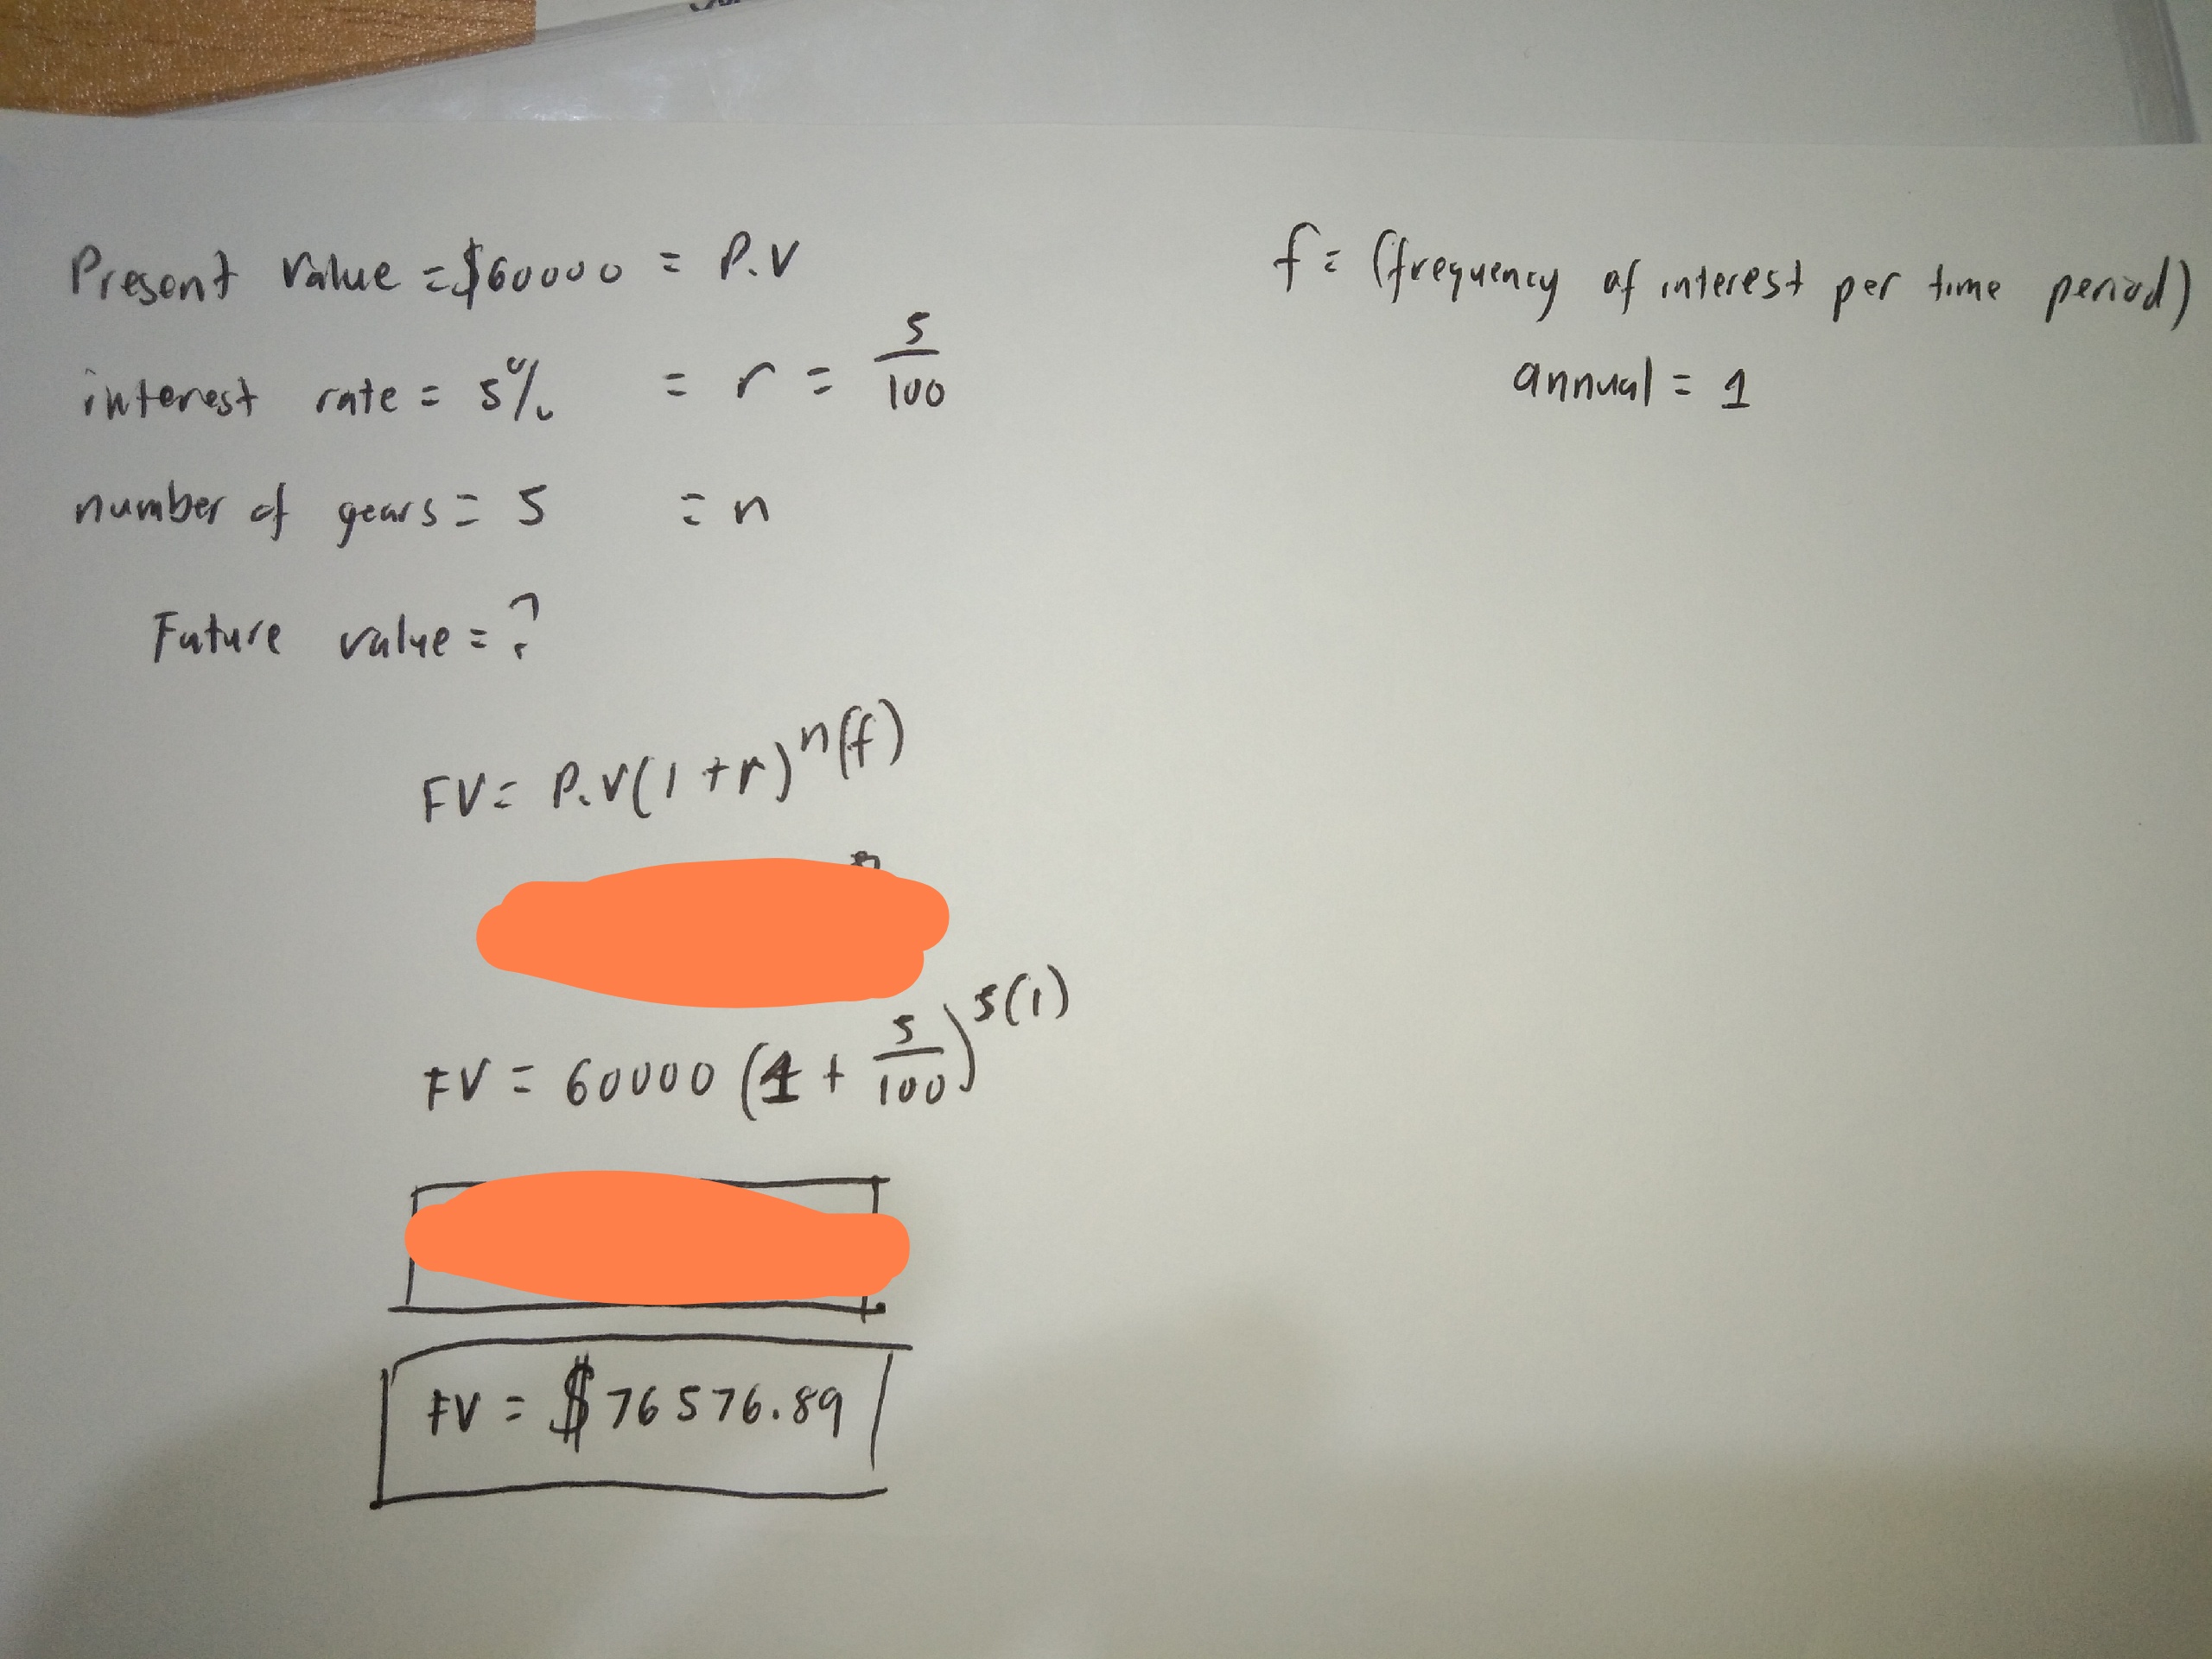 Present value = $60000 = P.V
f = (frequency of interest per time period)
annual = 1
interest rate = 5% = r = 5/100
number of years = 5 = n
Future value = ?
FV = P.V(1 + r)^n(f)
FV = 60000 (1 + 5/100)^5(1)
FV = $76576.89